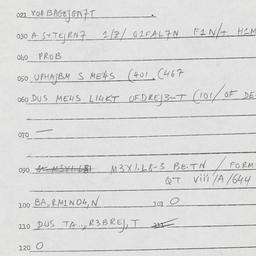 021 YOPBAGEJGN7T
030 A S+TEJRN7 1/8/ 01FAL7N F1N/+ H1M
040 PROB
050 UPHAJBM S ME4S (401 (467
060 DUS ME4S LI4KT OFDREJ3-T (101/ OF DE
070 —
090 M3X1.LR-S BE.TN / FORM
QT viii/A/644
100 BA,RM1ND4,N 101 O
110 DUS TA..,R3BREJ,T
120 O